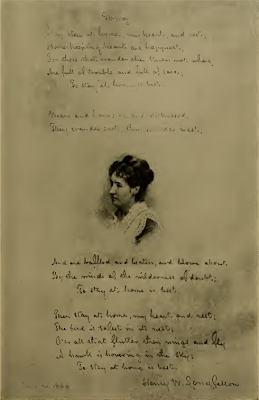 Song
Stay, stay at home, my heart, and rest;
Home-keeping hearts are happiest,
For those that wander they know not where
Are full of trouble and full of care,
To stay at home is best.
Weary and homesick and distressed,
They wander east, they wander west,
And are baffled and beaten, and blown about
By the winds of the wilderness of doubt;
To stay at home is best.
Then stay at home, my heart, and rest;
The bird is safest in its nest;
O'er all that flutter their wings and fly
A hawk is hovering in the sky;
To stay at home is best.
Henry W. Longfellow